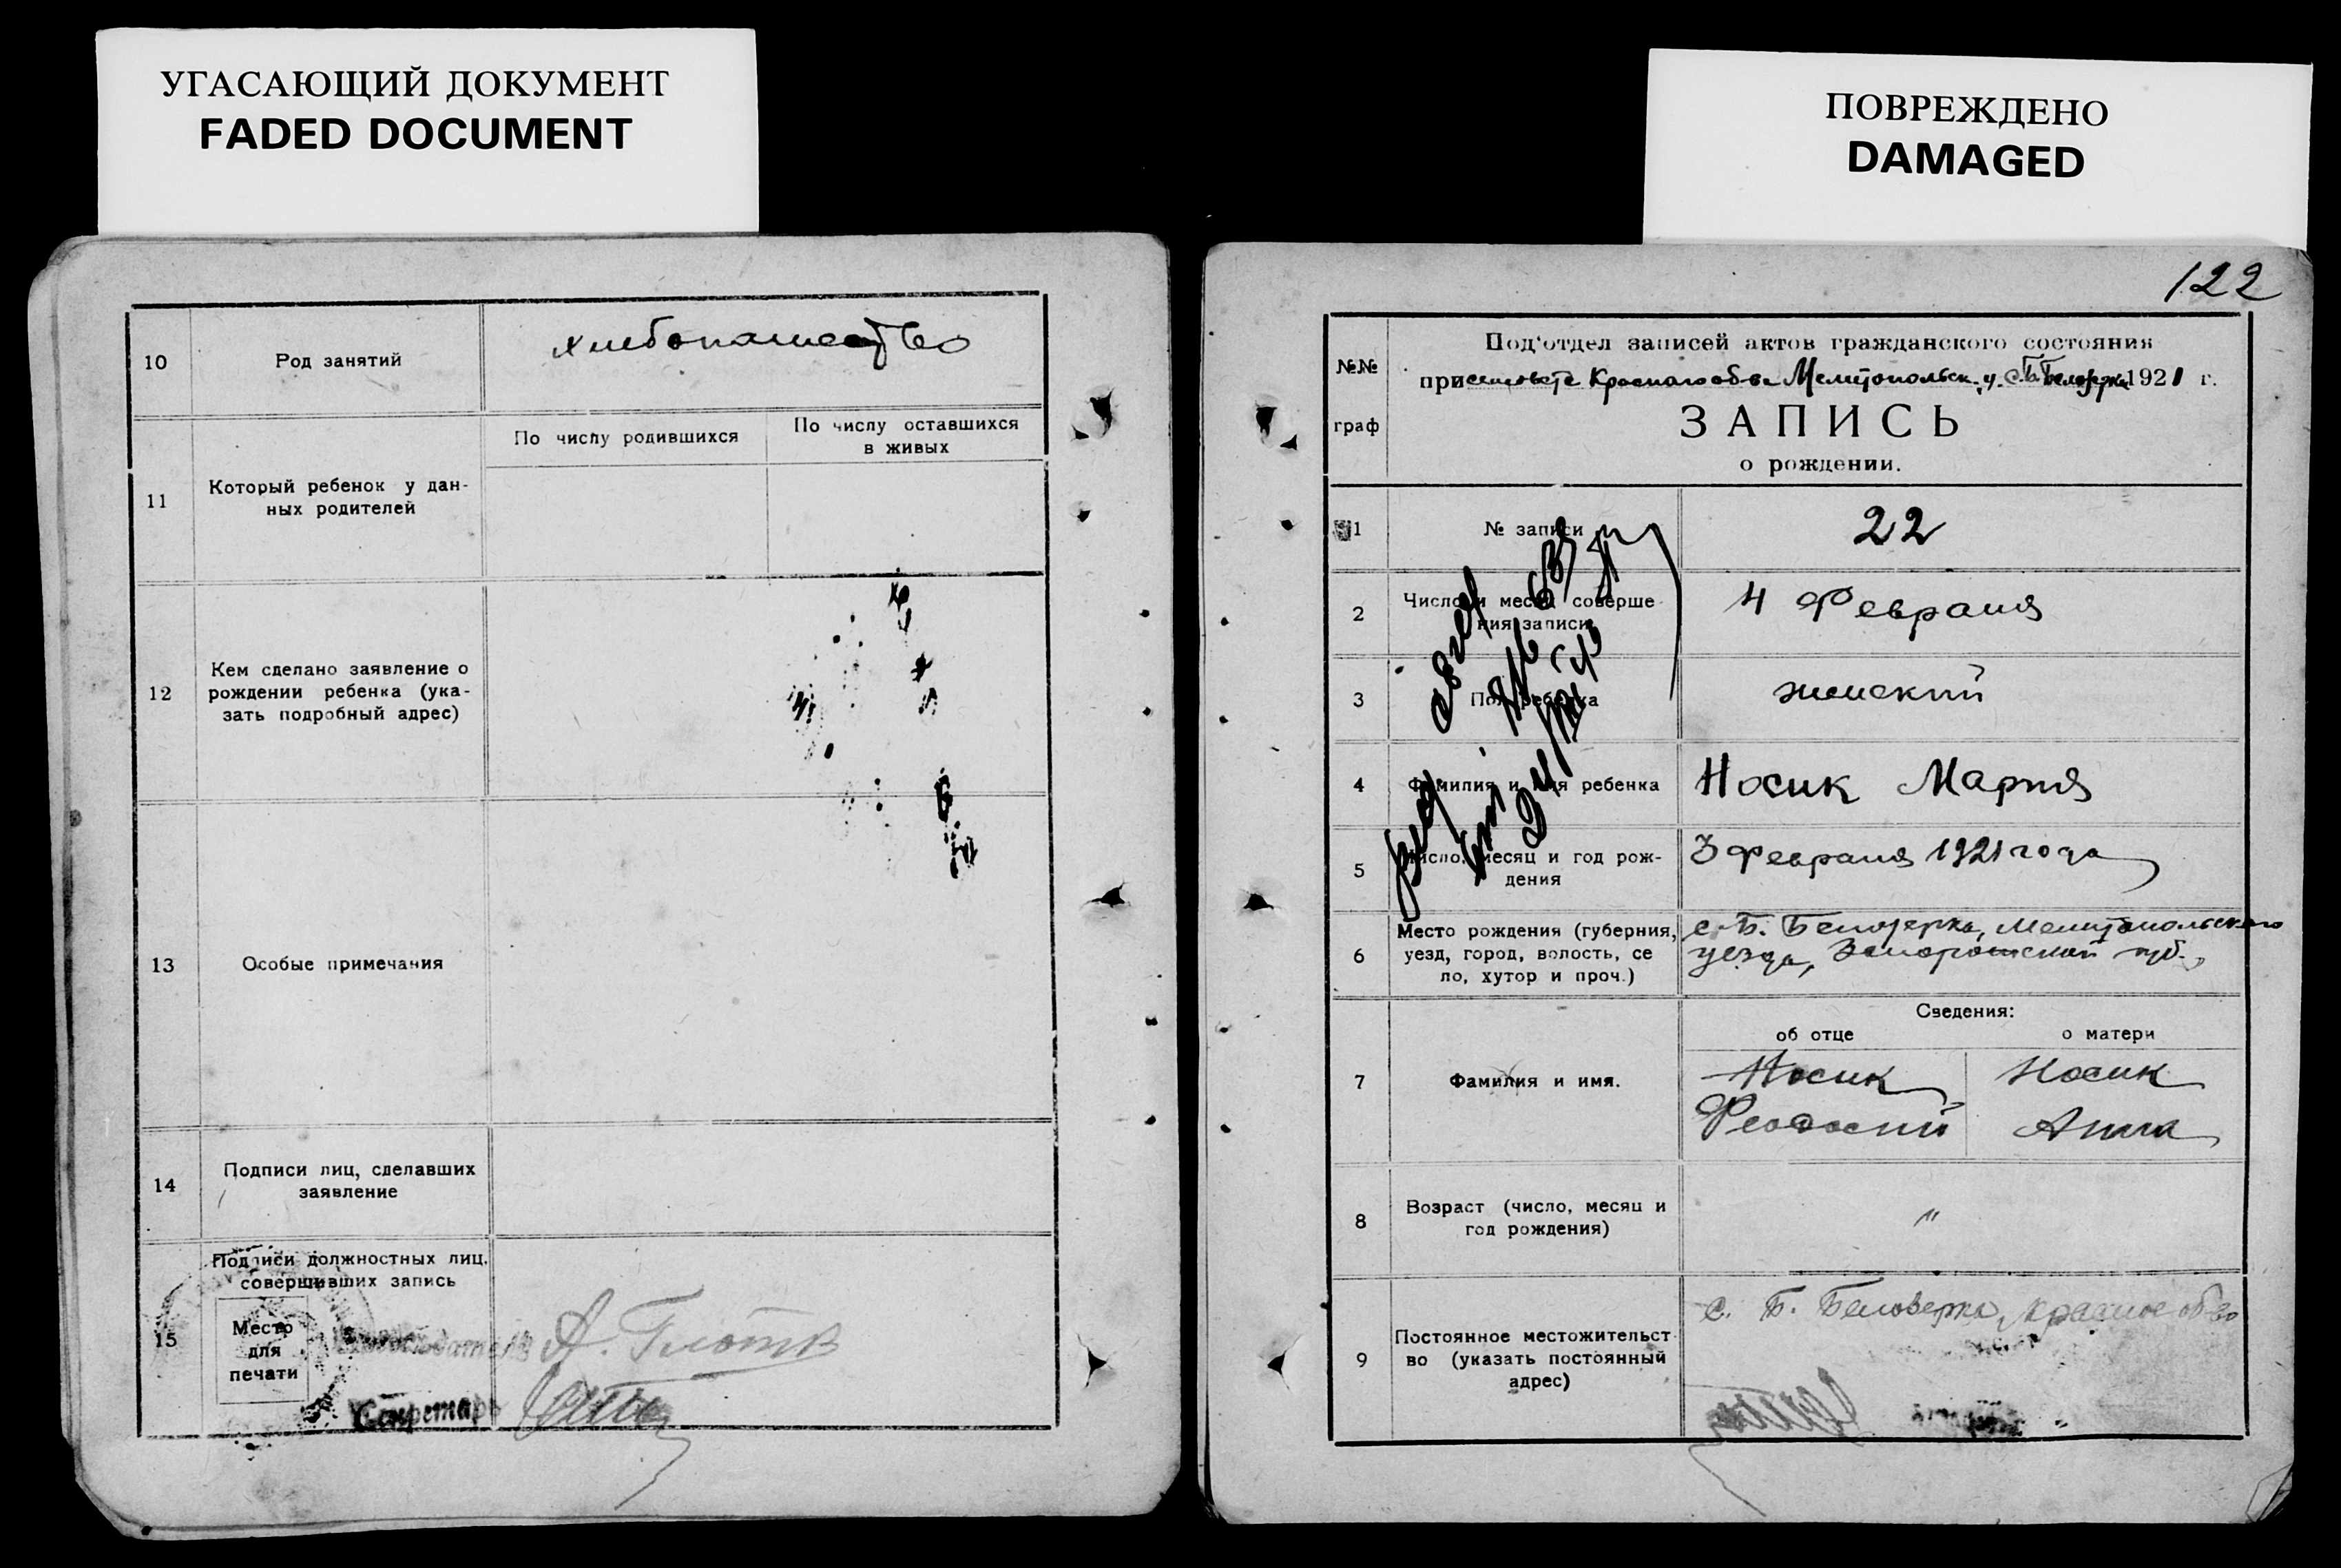 УГАСАЮЩИЙ ДОКУМЕНТ
FADED DOCUMENT
10
Род занятий
хлебопашество
11
Который ребенок у дан-
ных родителей
По числу родившихся
По числу оставшихся
в живых
12
Кем сделано заявление о
рождении ребенка (ука-
зать подробный адрес)
13
Особые примечания
14
Подписи лиц, сделавших
заявление
15
Подписи должностных лиц,
совершивших запись
Место
для
печати
Секретарь
ПОВРЕЖДЕНО
DAMAGED
122
№№
граф
Под'отдел записей актов гражданского состояния
при сельсовете Красного об-ва Мелитопольск. у. с. Б. Белозерка 1921 г.
ЗАПИСЬ
о рождении.
1
№ записи
22
2
Число и месяц соверше
ния записи
4 Февраля
3
Пол ребенка
женский
4
Фамилия и имя ребенка
Носик Мария
5
Число, месяц и год рож-
дения
3 Февраля 1921 года
6
Место рождения (губерния,
уезд, город, волость, се
ло, хутор и проч.)
с. Б. Белозерка, Мелитопольского
уезда, Запорожской губ.,
Сведения:
об отце
о матери
7
Фамилия и имя.
Носик
Феодосий
Носик
Анна
8
Возраст (число, месяц и
год рождения)
"
9
Постоянное местожительст
во (указать постоянный
адрес)
с. Б. Белозерка, Красное об-во